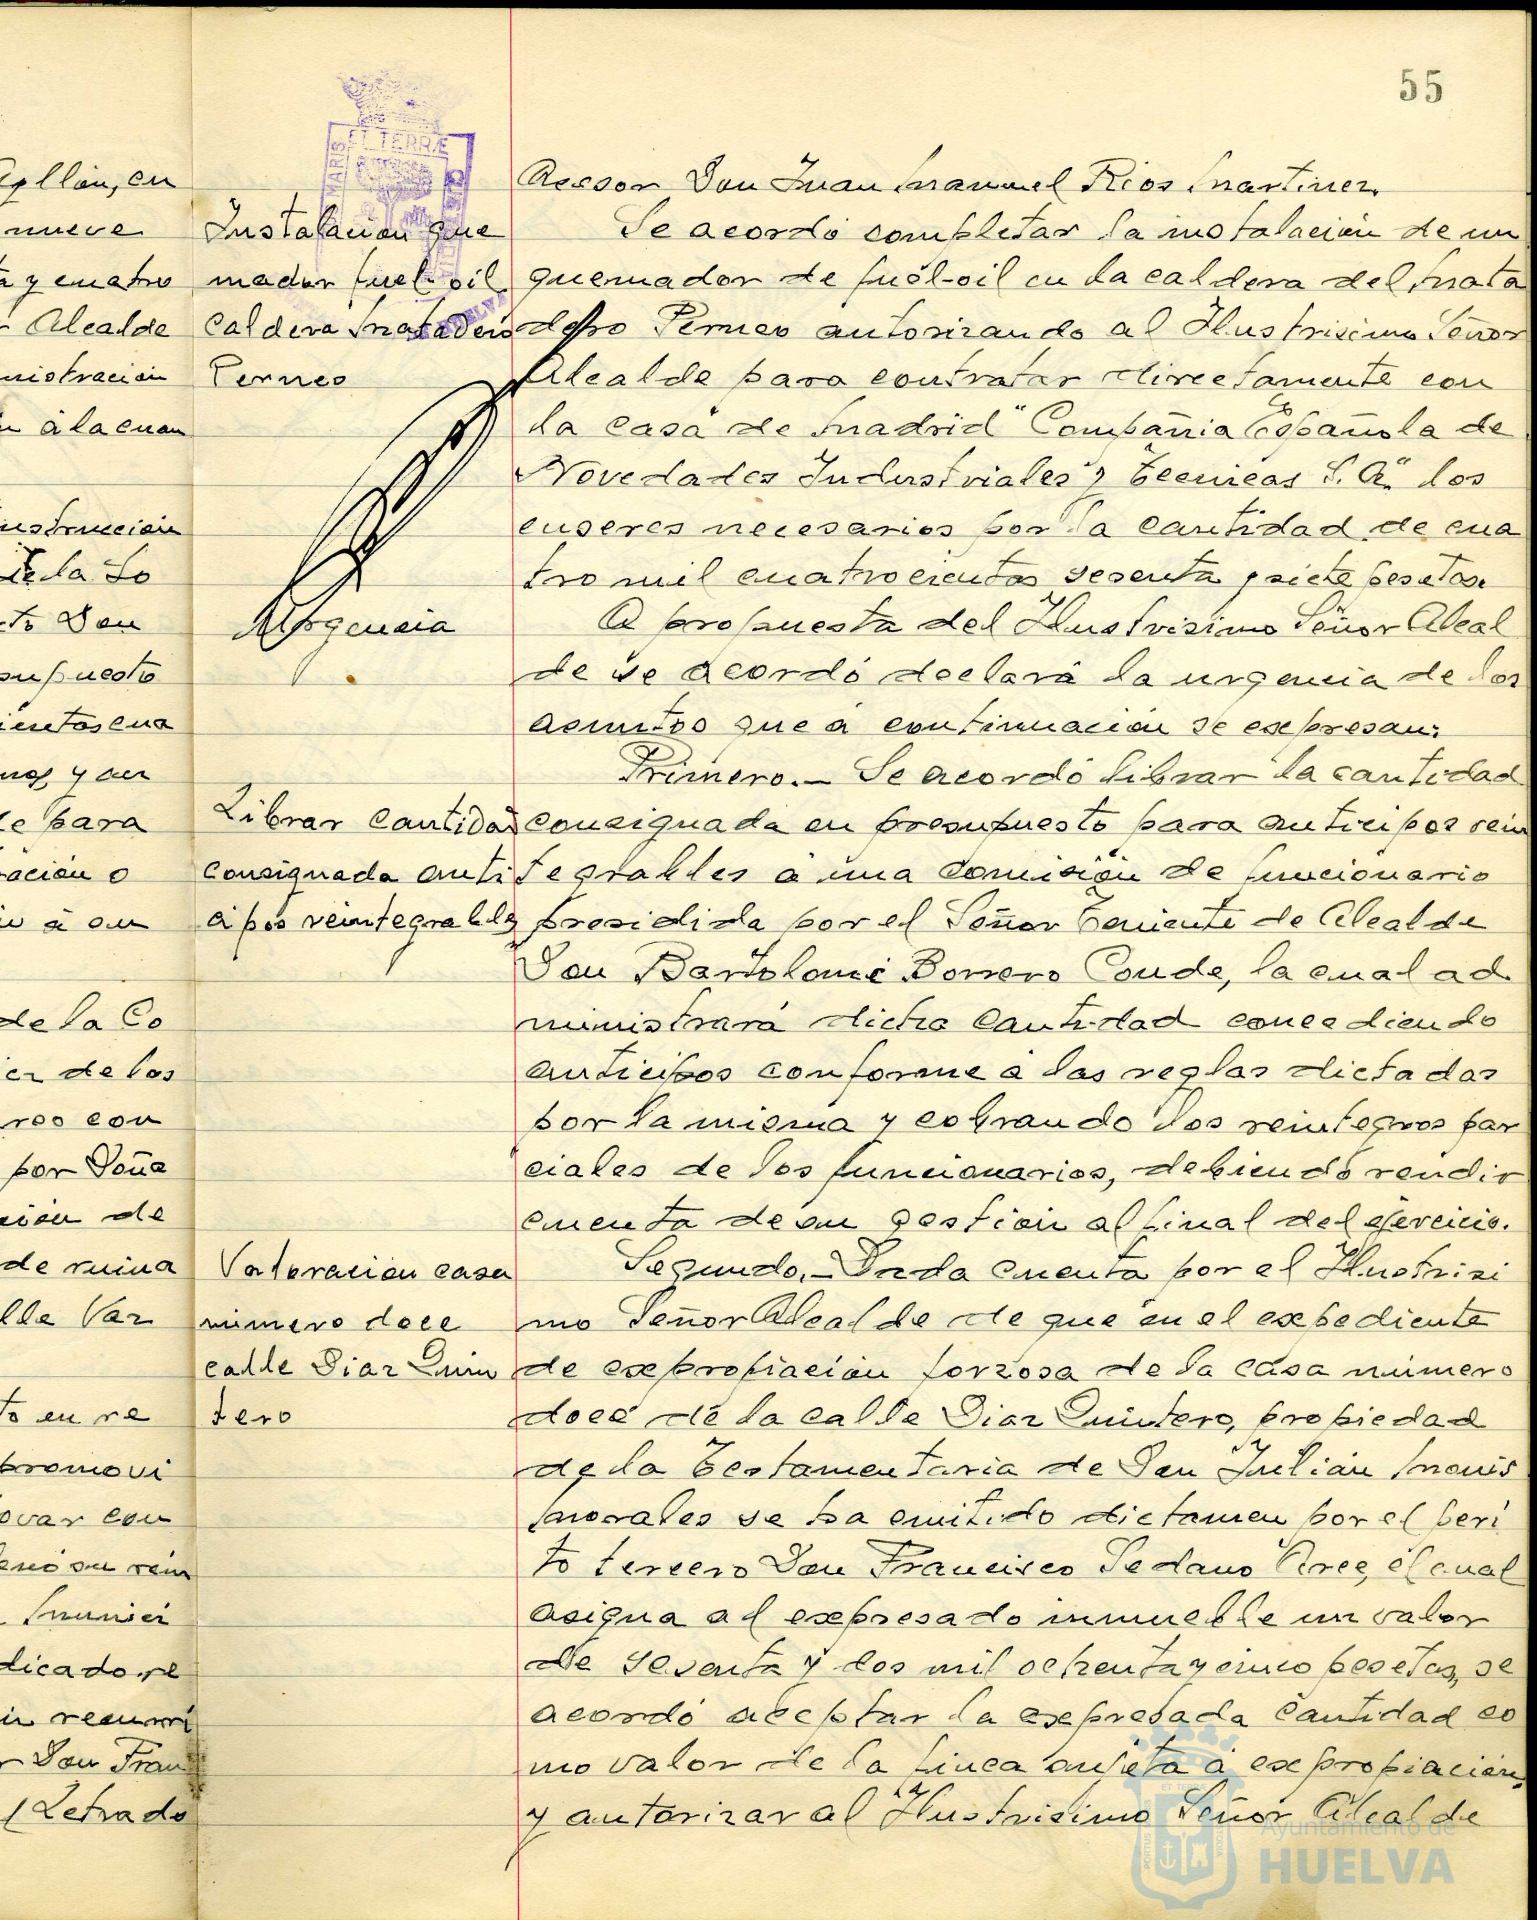 55
Asesor Don Juan Manuel Rios Martinez.
Instalacion que
mador fuel-oil
caldera Matadero
Perneo
Se acordó completar la instalación de un
quemador de fuel-oil en la caldera del Mata
dero Perneo autorizando al Ilustrisimo Señor
Alcalde para contratar directamente con
la casa de Madrid "Compañia Española de
Novedades Industriales y Tecnicas S.A." los
enseres necesarios por la cantidad de cua
tro mil cuatrocientas sesenta y siete pesetas.
Urgencia
A propuesta del Ilustrisimo Señor Alcal
de se acordó declarar la urgencia de los
asuntos que á continuación se expresan:
Librar cantidad
consignada anti
cipos reintegrables
Primero.- Se acordó librar la cantidad
consignada en presupuesto para anticipos rein
tegrables á una comisión de funcionario
presidida por el Señor Teniente de Alcalde
Don Bartolomé Borrero Conde, la cual ad
ministrará dicha cantidad concediendo
anticipos conforme á las reglas dictadas
por la misma y cobrando los reintegros par
ciales de los funcionarios, debiendo rendir
cuenta de su gestión al final del ejercicio.
Valoracion casa
número doce
calle Diaz Quin
tero
Segundo.- Dada cuenta por el Ilustrisi
mo Señor Alcalde de que en el expediente
de expropiación forzosa de la casa número
doce de la calle Diaz Quintero, propiedad
de la Testamentaria de Don Julián Monis
Morales se ha emitido dictamen por el peri
to tercero Don Francisco Sedano Arce, el cual
asigna al expresado inmueble un valor
de sesenta y dos mil ochenta y cinco pesetas, se
acordó aceptar la expresada cantidad co
mo valor de la finca sujeta á expropiación,
y autorizar al Ilustrisimo Señor Alcalde
nueve
y cuatro
Alcalde
nistración
á la cuan
de la So
Don
supuesto
y an
para
ación o
á su
de la Co
de los
con
por Doña
de
de ruina
lle Vaz
to en re
promovi
ovar con
su rein
Munici
dicado, re
recurri
Don Fran
Letrado
ET TERRÆ
MARIS
HUELVA
Ayuntamiento de
HUELVA